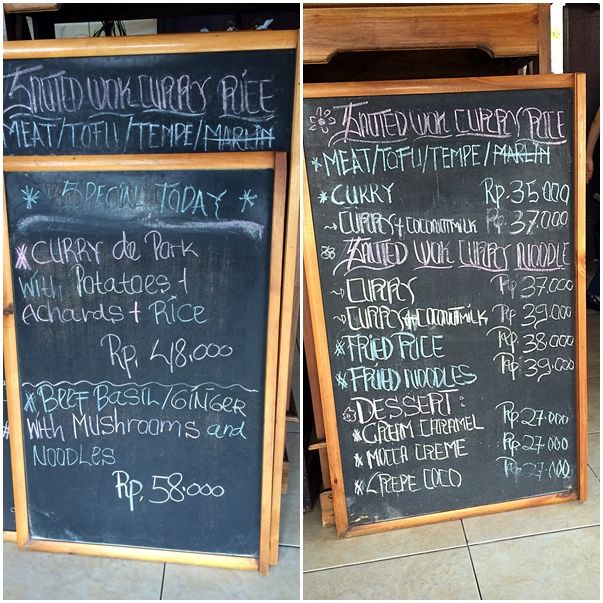 SAUTED WOK CURRY RICE
MEAT/TOFU/TEMPE/MARLIN
* SPECIAL TODAY *
* CURRY de PORK
With Potatoes +
Achards + RICE
Rp. 48.000
* BEEF BASIL/GINGER
With Mushrooms and
NOODLES
Rp. 58.000
SAUTED WOK CURRY RICE
* MEAT/TOFU/TEMPE/MARLIN
* CURRY Rp. 35.000
→ CURRY + COCONUTMILK Rp. 37.000
SAUTED WOK CURRY NOODLE
→ CURRY Rp. 37.000
→ CURRY + COCONUTMILK Rp. 39.000
* FRIED RICE Rp. 38.000
* FRIED NOODLES Rp. 39.000
DESSERT:
* CREAM CARAMEL Rp. 27.000
* MOCCA CREME Rp. 27.000
* CREPE COCO Rp. 27.000